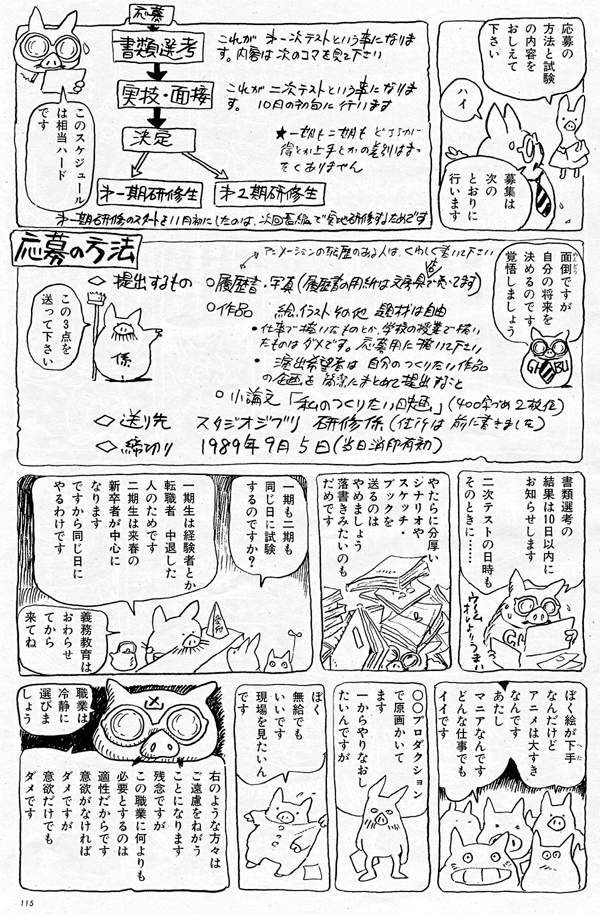 応募の
方法と試験
の内容を
おしえて
下さい
ハイ
募集は
次の
とおりに
行います
応募
書類選考
これが 第一次テストという事になりま
す。内容は次のコマを見て下さい
実技・面接
これが二次テストという事になります。
10月の初旬に行います
決定
★一期も二期も どちらかに
得とか上手とかの差別はまっ
たくありません
第一期研修生
第2期研修生
第一期研修のスタートを11月初にしたのは、次回長編で実地研修するためです
このスケジュール
は相当ハード
です
面倒ですが
自分の将来を
決めるのです
覚悟しましょう
GHIBU
応募の方法
アニメーションの経歴のある人は、くわしく書いて下さい
◇提出するもの
○履歴書・写真(履歴書の用紙は文房具店で売ってます)
○作品 絵、イラストその他 題材は自由
・仕事で描いたものとか、学校の授業で描い
たものはダメです。応募用に描いて下さい
・演出希望者は 自分のつくりたい作品
の企画を簡潔にまとめて提出すること
○小論文「私のつくりたい映画」(400字づめ2枚位)
◇送り先 スタジオジブリ 研修係(住所は前に書きました)
◇締切り 1989年9月5日(当日消印有効)
この3点を
送って下さい
係
書類選考の
結果は10日以内に
お知らせします
二次テストの日時も
そのときに……
ウーム
オレよりうまい
やたらに分厚い
シナリオや
スケッチ・
ブックを
送るのは
やめましょう
落書きみたいのも
だめです
一期も二期も
同じ日に試験
するのですか?
一期生は経験者とか
転職者 中退した
人のためです
二期生は来春の
新卒者が中心に
なります
ですから同じ日に
やるわけです
義務教育は
おわらせ
てから
来てね
受付
ぼく絵が下手
へた
なんだけど
アニメは大すき
なんです
あたし
マニアなんです
どんな仕事でも
イイです
○○プロダクション
で原画かいて
ます
一からやりなおし
たいんですが
ぼく
無給でも
いいです
現場を見たいん
です
右のような方々は
ご遠慮をねがう
ことになります
残念ですが
この職業に何よりも
必要とするのは
適性だからです
意欲がなければ
ダメですが
意欲だけでも
ダメです
職業は
冷静に
選びま
しょう
115